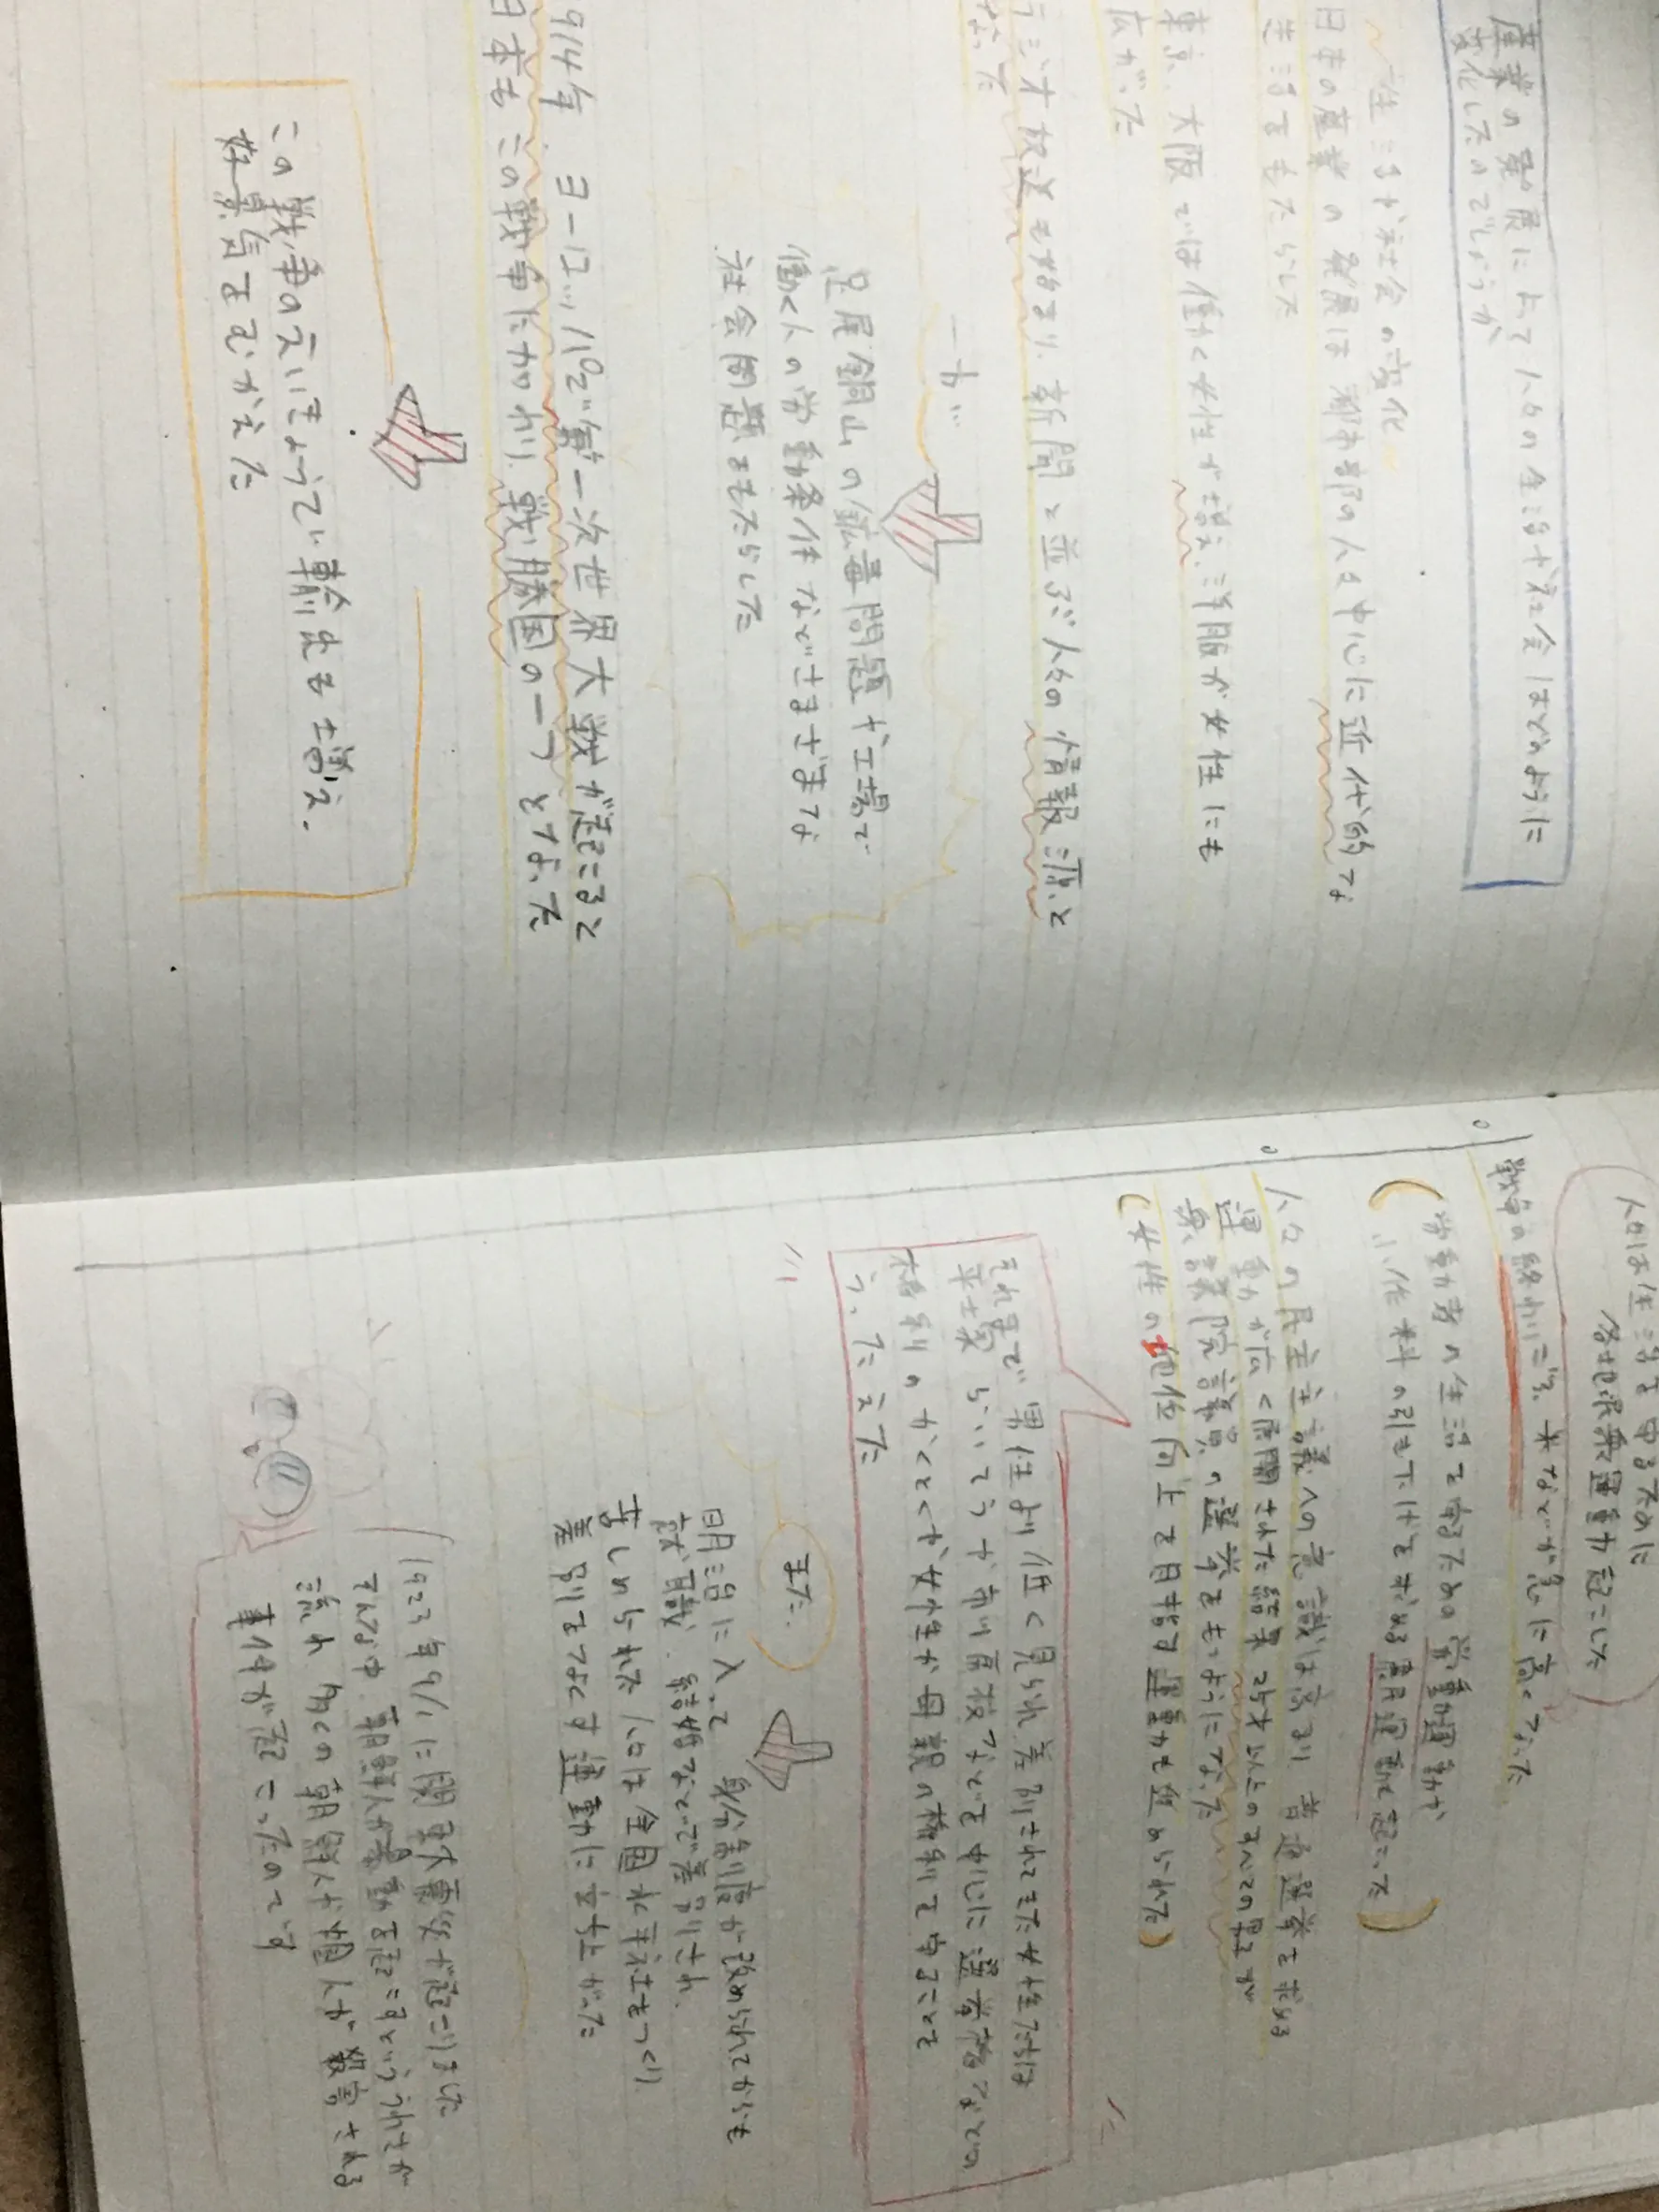 産業の発展によって人々の生活や社会はどのように
変化したのでしょうか
〜生活や社会の変化〜
日本の産業の発展は都市部の人を中心に近代的な
生活をもたらした
東京、大阪では働く女性が増え、洋服が女性にも
広がった
ラジオ放送も始まり、新聞と並ぶ人々の情報源と
なった
一方…
足尾銅山の鉱毒問題や工場で
働く人の労働条件などさまざまな
社会問題をもたらした
914年、ヨーロッパで第一次世界大戦が起こると
日本もこの戦争に加わり、戦勝国の一つとなった
この戦争のえいきょうで輸出も増え、
好景気をむかえた
人々は生活を守るために
各地で民衆運動を起こした
戦争の終わりごろ、米などが急に高くなった
(労働者の生活を守るための労働運動や
小作料の引き下げを求める農民運動も起こった)
人々の民主主義への意識は高まり、普通選挙を求める
運動が広く展開された結果25才以上のすべての男子が
衆議院議員の選挙をもつようになった
(女性の地位向上を目指す運動も進められた)
それまで男性より低く見られ差別されてきた女性たちは
平塚らいてうや市川房枝などを中心に選挙権などの
権利のかくとくや女性が母親の権利を守ることを
うったえた
また、
明治に入って身分制度が改められてからも
就職、結婚などで差別され、
苦しめられた人々は全国水平社をつくり
差別をなくす運動に立ち上がった
1923年9/1に関東大震災が起こりました
そんな中、朝鮮人が暴動を起こすといううわさが
流れ、多くの朝鮮人が殺害される
事件が起こったのです